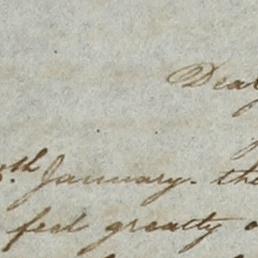 Dear
th January. the
feel greatly